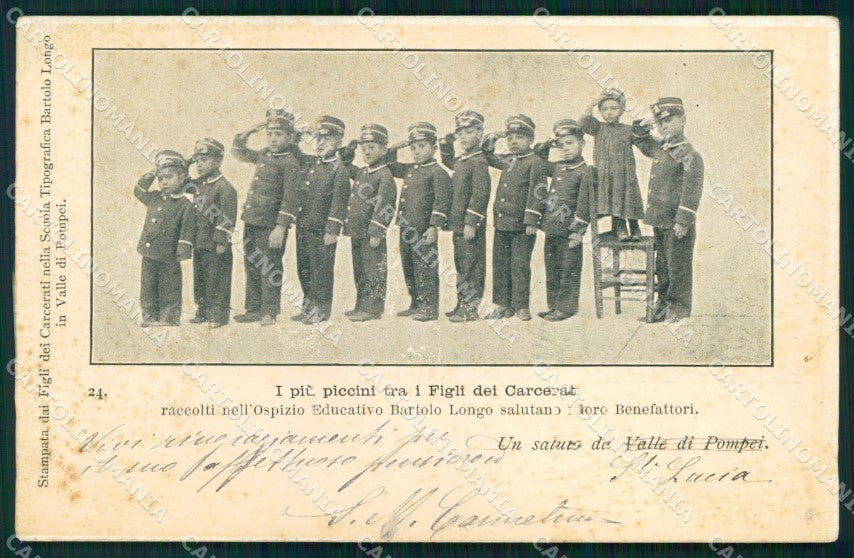 Stampata dai Figli dei Carcerati nella Scuola Tipografica Bartolo Longo
in Valle di Pompei.
24.
I più piccini tra i Figli dei Carcerat
raccolti nell'Ospizio Educativo Bartolo Longo salutano i loro Benefattori.
Un saluto da Valle di Pompei.
Vivi ringraziamenti per
il suo affettuoso pensiero
Sta Lucia
CARTOLINOMANIA